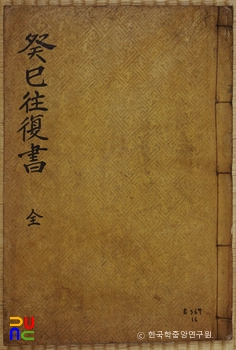 癸巳往復書
全
© 한국학중앙연구원